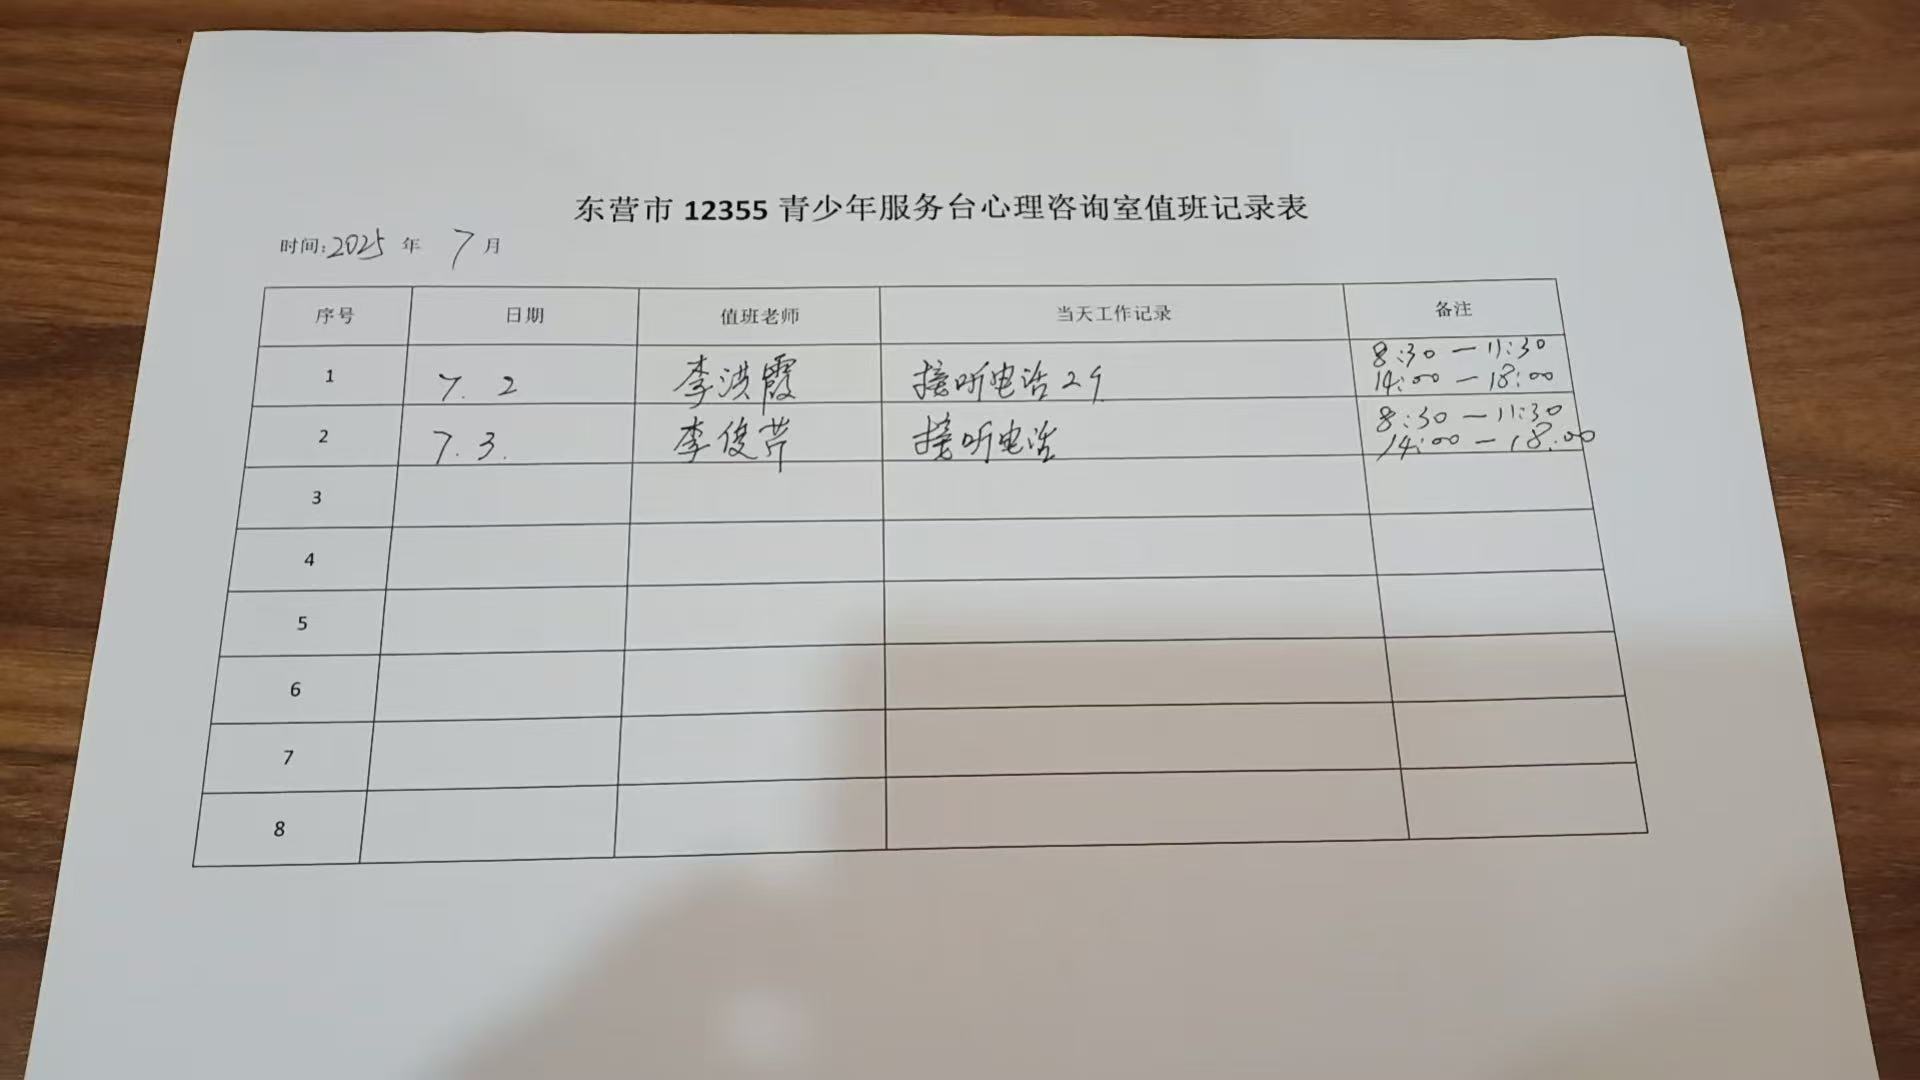 东营市 12355 青少年服务台心理咨询室值班记录表
时间:2025 年 7 月
序号 日期 值班老师 当天工作记录 备注
1 7. 2 李洪霞 接听电话 8:30 — 11:30
14:00 — 18:00
2 7. 3. 李俊芹 接听电话 8:30 — 11:30
14:00 — 18:00
3
4
5
6
7
8